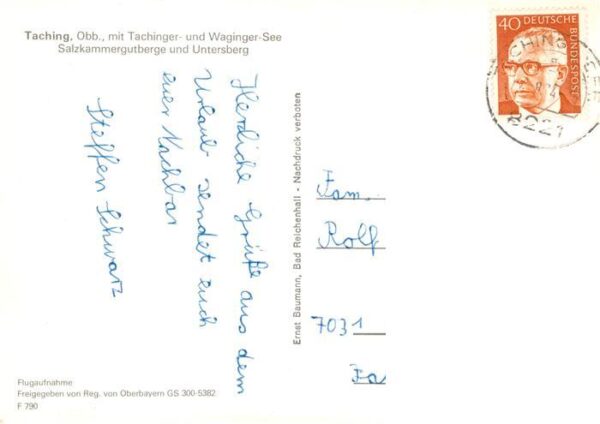 Taching, Obb., mit Tachinger- und Waginger-See
Salzkammergutberge und Untersberg
Herzliche Grüße aus dem
Urlaub sendet euch
euer Nachbar
Steffen Schwarz
Flugaufnahme
Freigegeben von Reg. von Oberbayern GS 300-5382
F 790
Ernst Baumann, Bad Reichenhall - Nachdruck verboten
40 DEUTSCHE
BUNDESPOST
TACHING
8221
Fam.
Rolf
7031